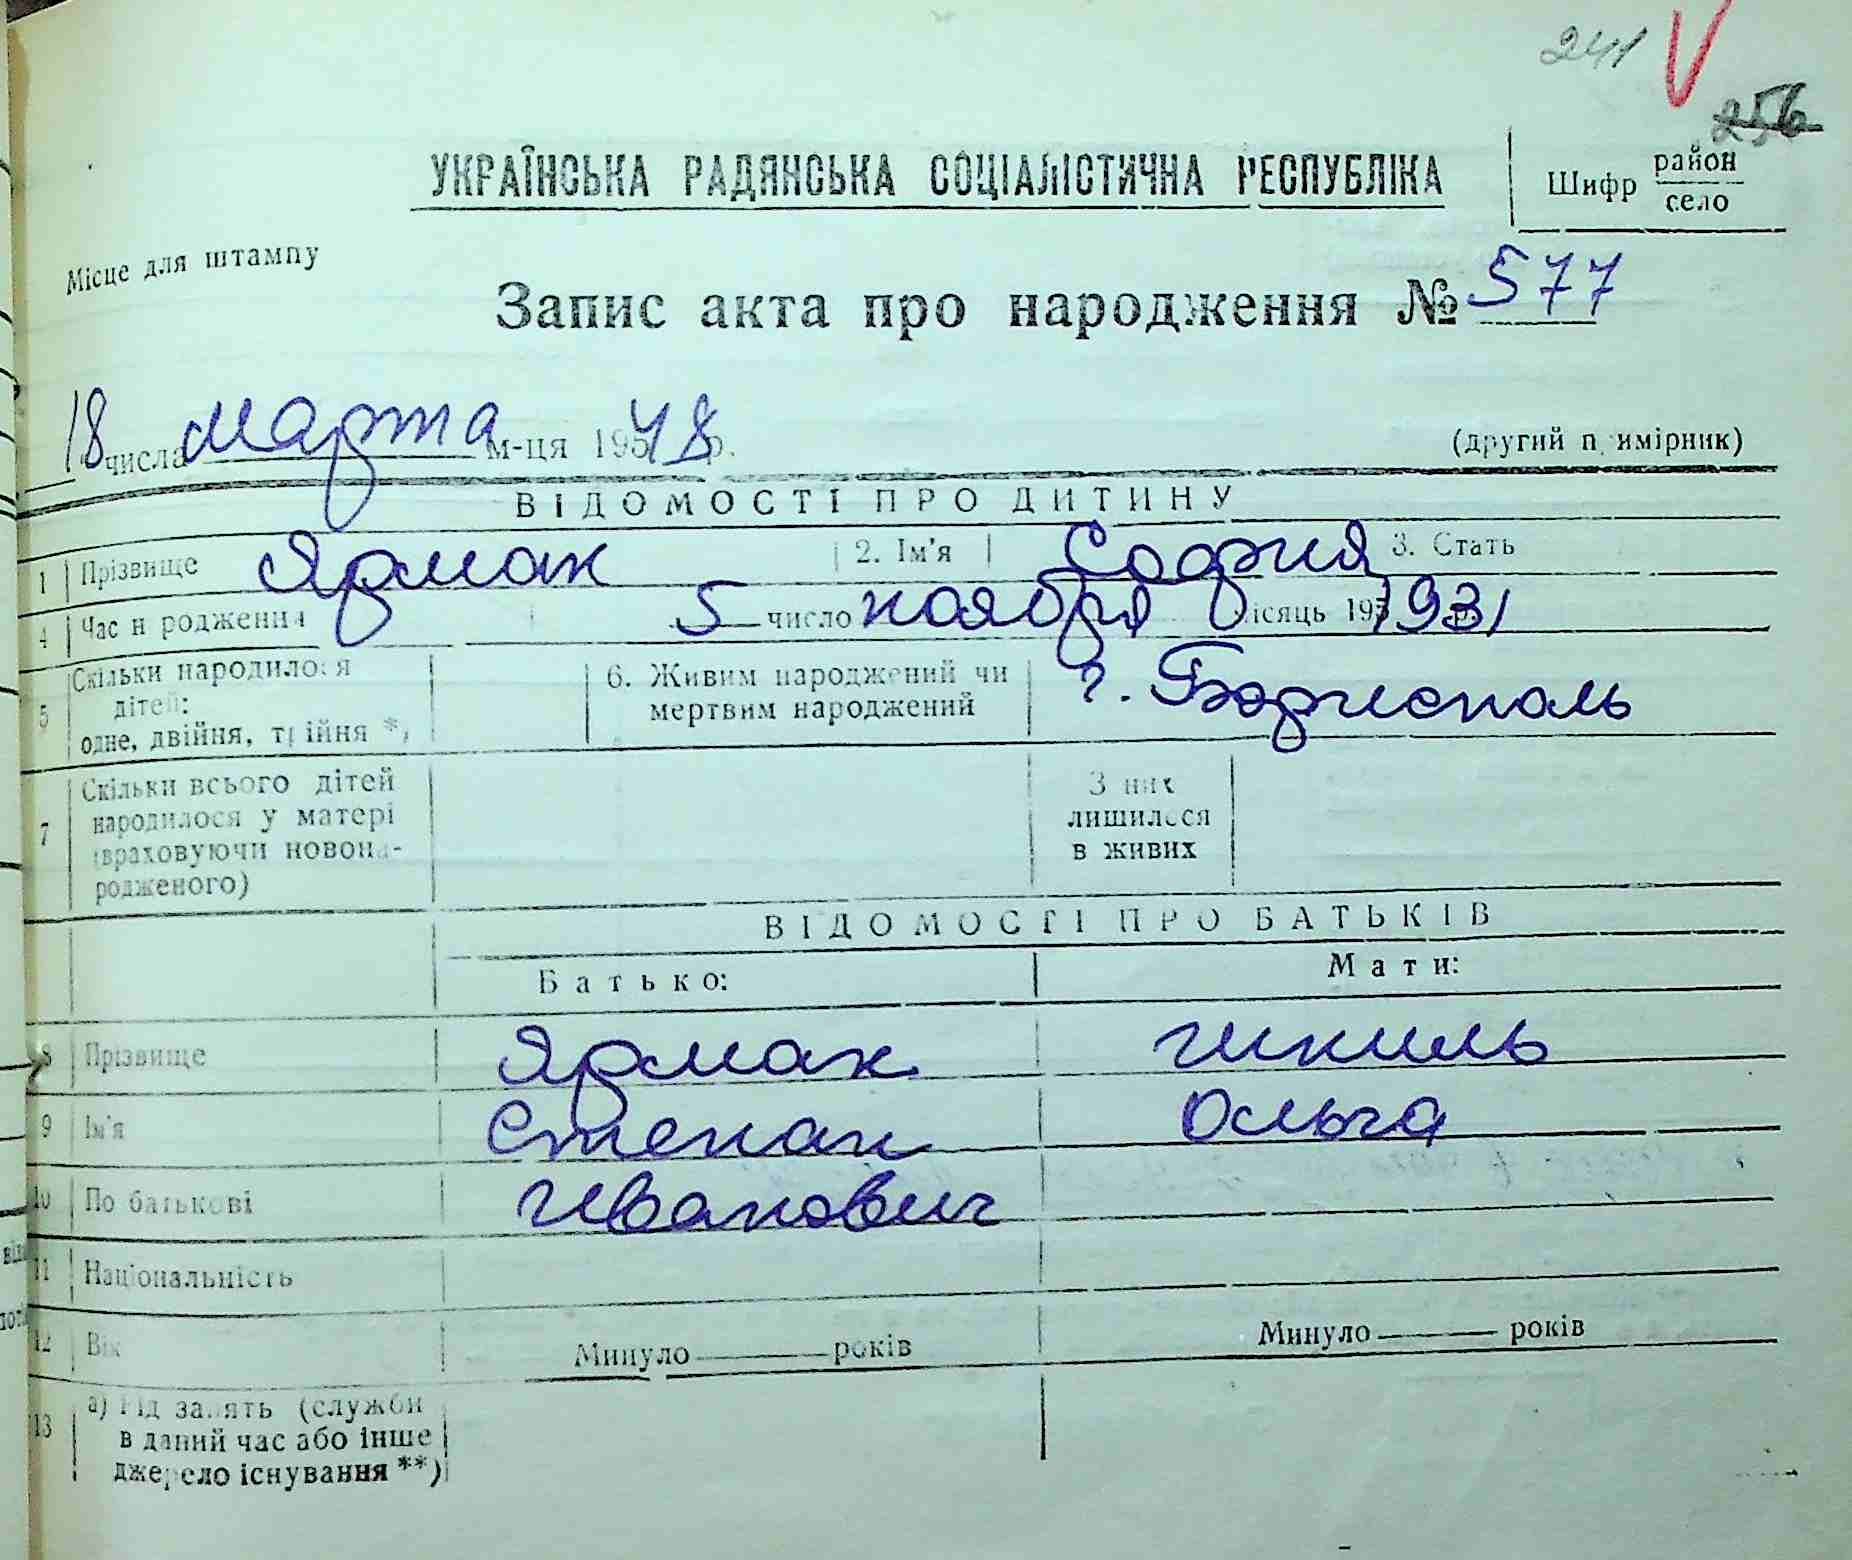 241
256
УКРАЇНСЬКА РАДЯНСЬКА СОЦІАЛІСТИЧНА РЕСПУБЛІКА
Шифр район село
Місце для штампу
Запис акта про народження № 577
18 числа марта м-ця 195 48 р.
(другий примірник)
ВІДОМОСТІ ПРО ДИТИНУ
1 Прізвище Ярмак 2. Ім'я София 3. Стать
4 Час народження 5 число ноября місяць 195 1931
5 Скільки народилося дітей: одне, двійня, трійня *)
6. Живим народжений чи мертвим народжений г. Борисполь
7 Скільки всього дітей народилося у матері (враховуючи новонародженого)
З них лишилося в живих
ВІДОМОСТІ ПРО БАТЬКІВ
Батько: Мати:
8 Прізвище Ярмак
9 Ім'я Степан Ольга
10 По батькові Иванович
11 Національність
12 Вік Минуло років Минуло років
13 а) Рід занять (служби
в даний час або інше
джерело існування **)